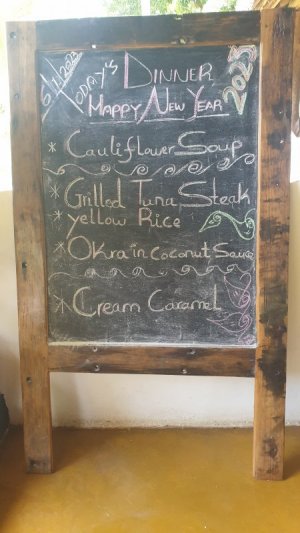 6/1/2023
TODAY'S DINNER
HAPPY NEW YEAR
2023
* Cauliflower Soup
* Grilled Tuna Steak
* yellow Rice
* Okra in Coconut Sauce
* Cream Caramel